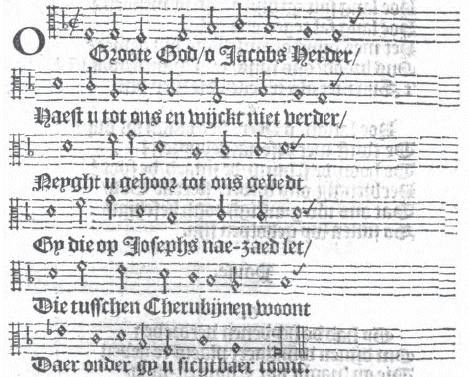 O Groote God/o Jacobs Herder/
Haest u tot ons en wijckt niet verder/
Neyght u gehoor tot ons gebedt
Gy die op Josephs nae-zaed let/
Die tusschen Cherubijnen woont
Daer onder gy u sichtbaer toont.